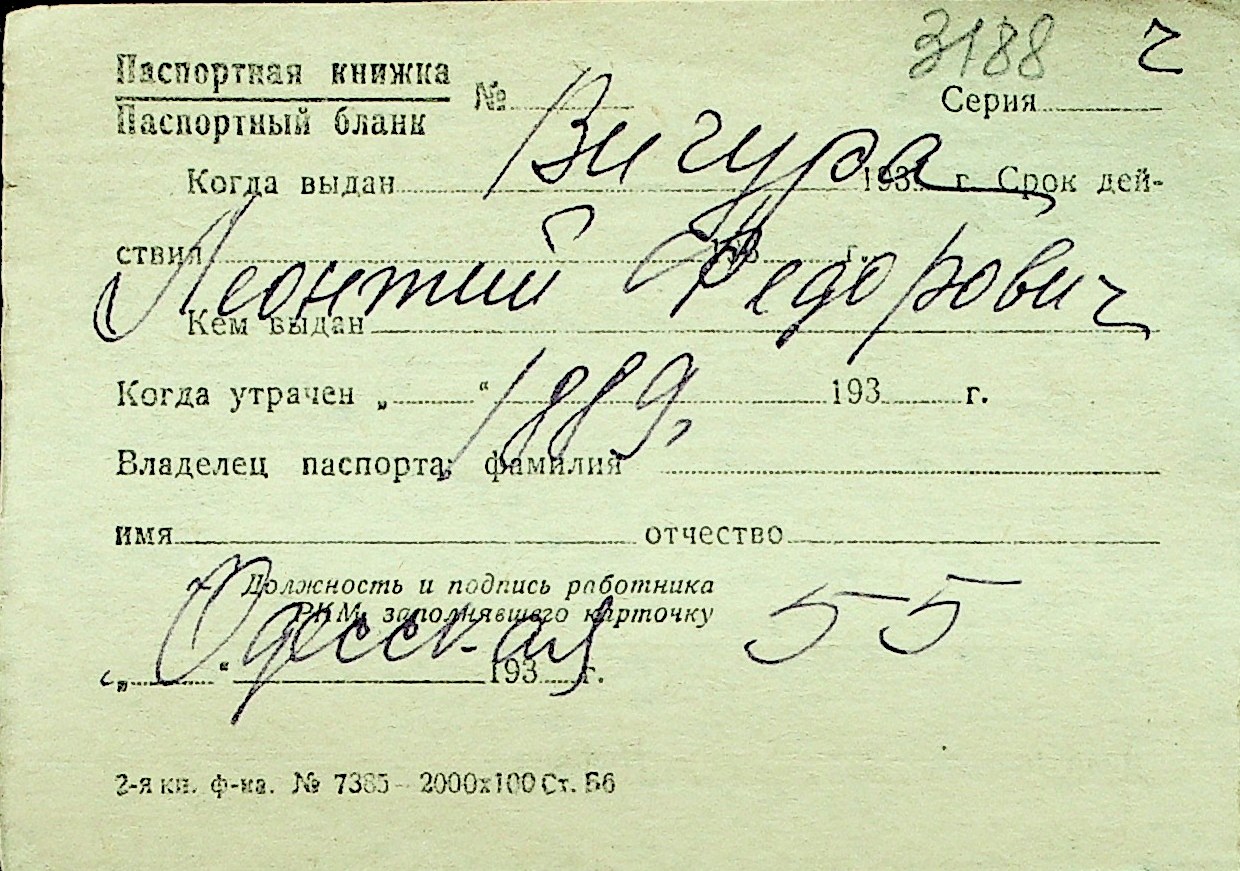 3188 ч
Паспортная книжка
Паспортный бланк
№ Серия
Вигура
Когда выдан 193 г. Срок дей-
ствия 193 г.
Леонтий Федорович
Кем выдан
Когда утрачен „ “ 193 г.
1889,
Владелец паспорта: фамилия
имя отчество
Должность и подпись работника
РКМ, заполнявшего карточку
Одесская 55
„ “ 193 г.
2-я кн. ф-ка. № 7385—2000х100 Ст. Б6